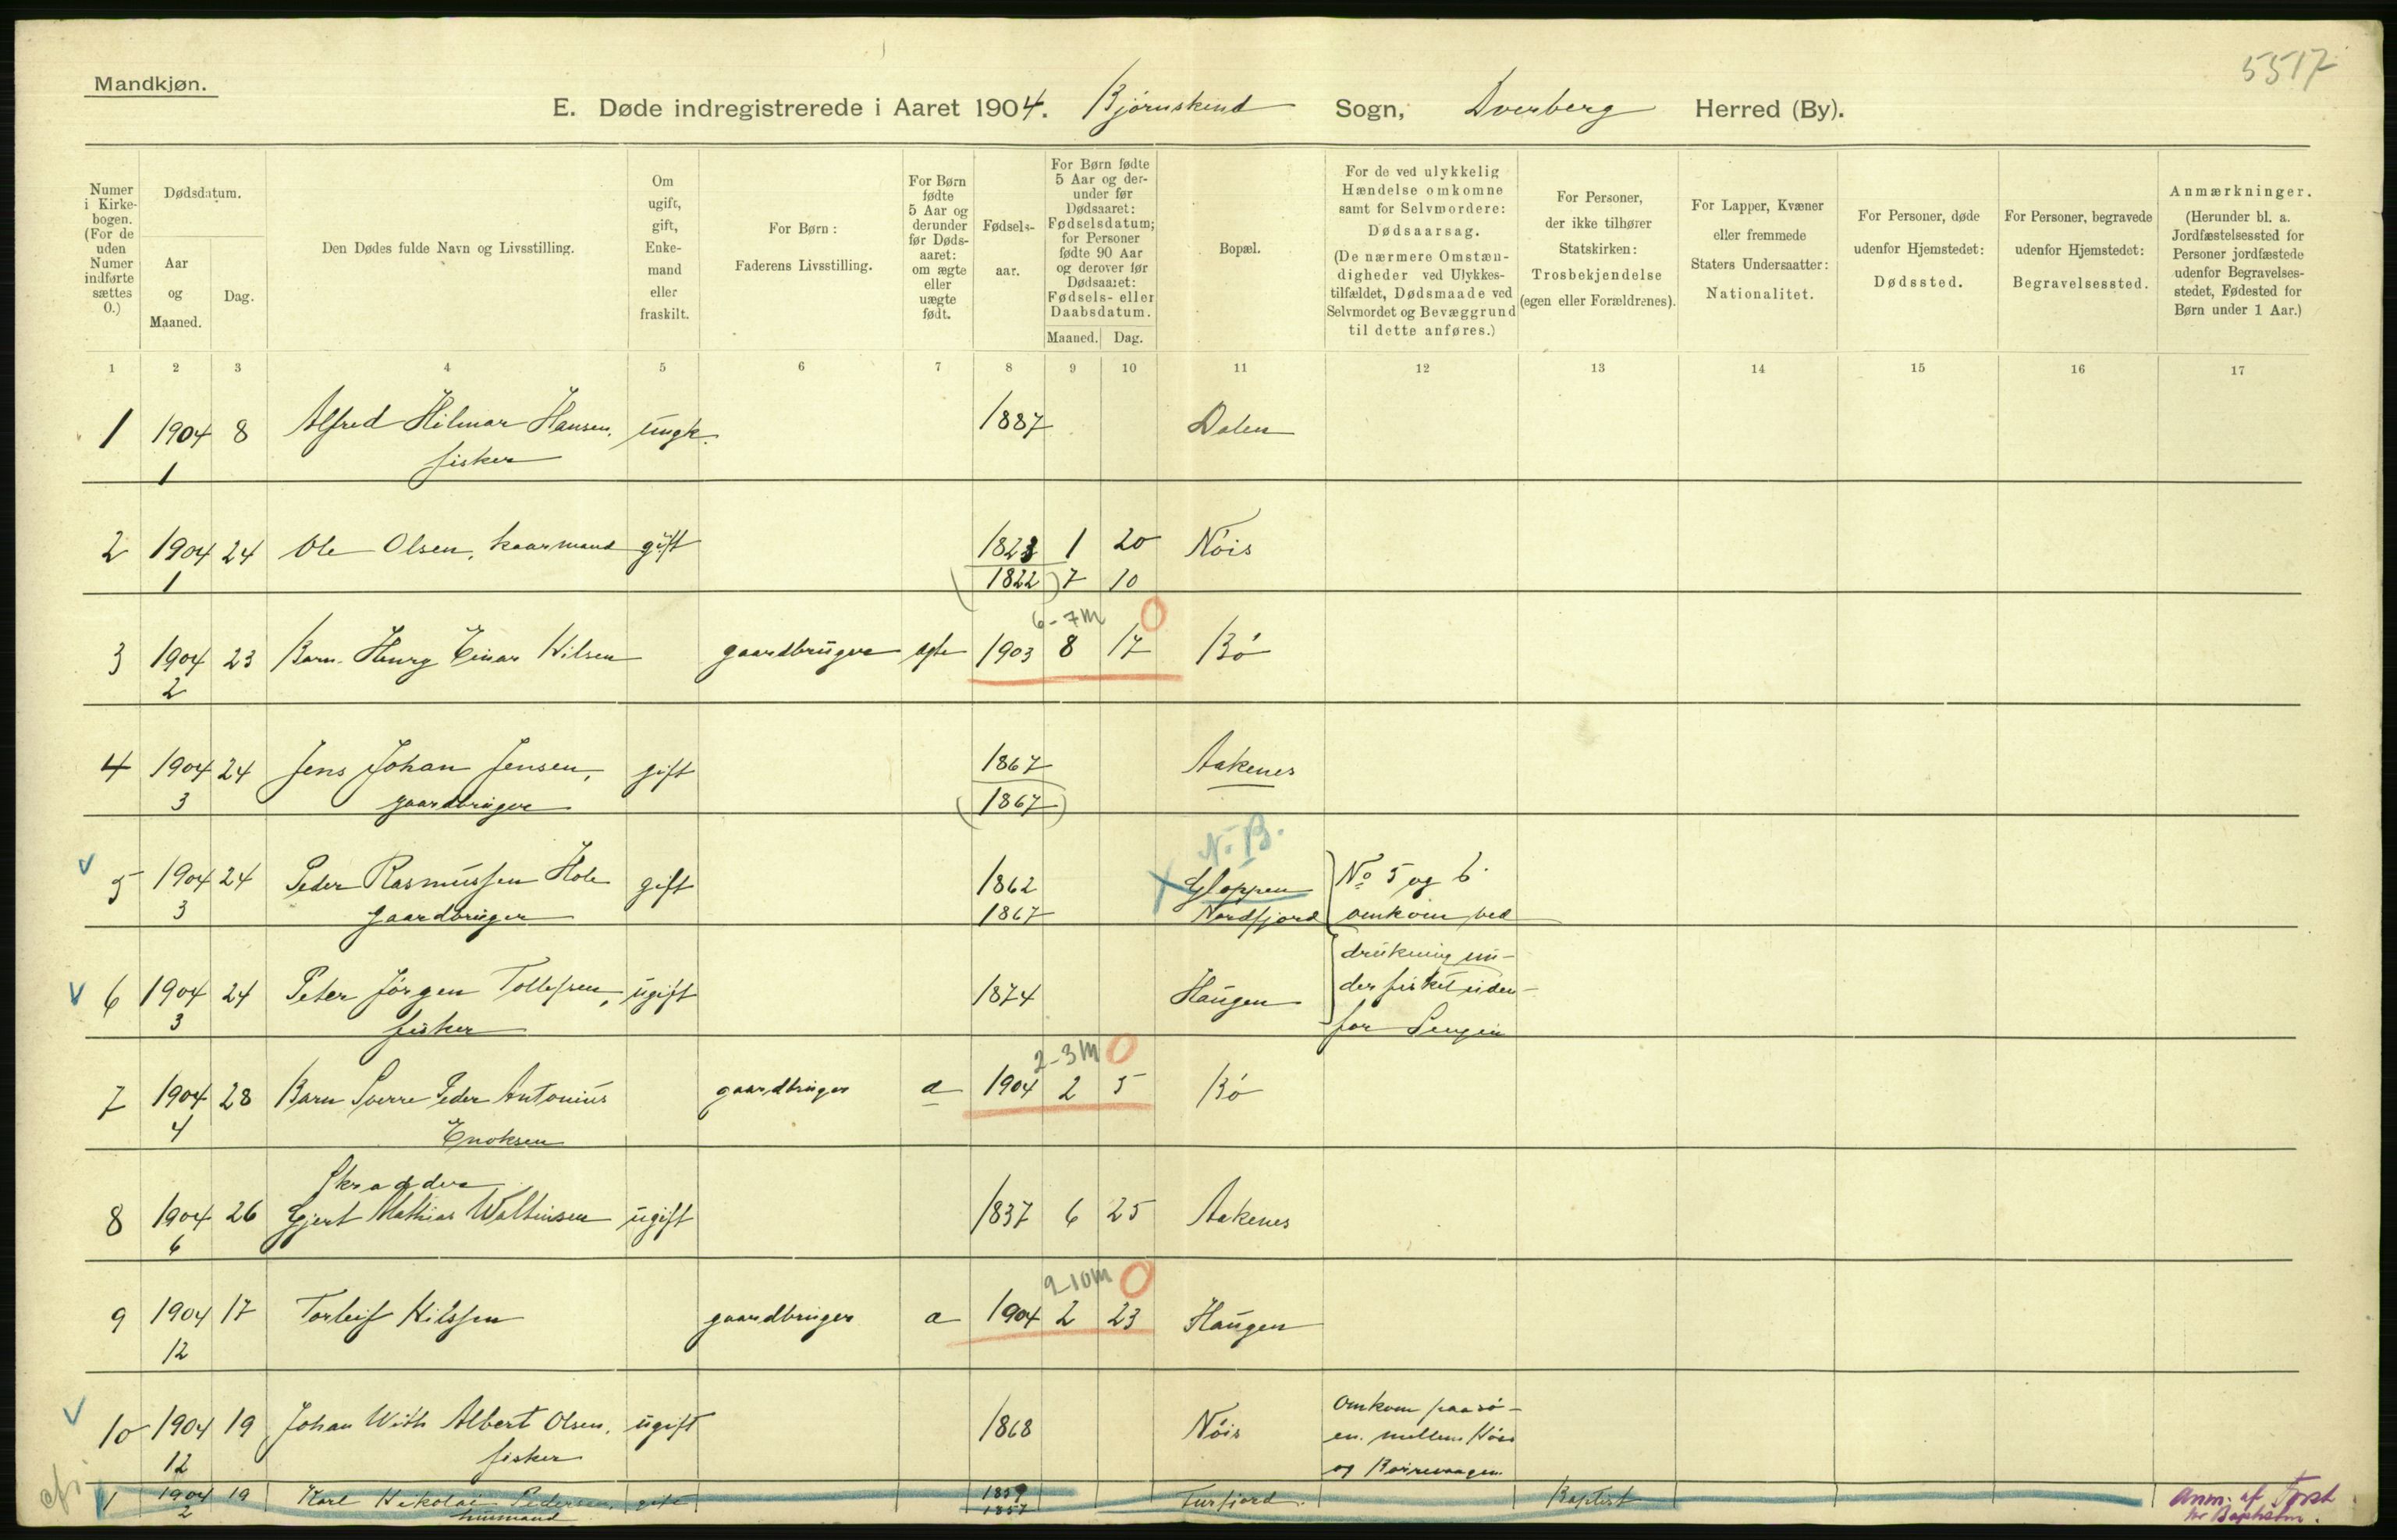 5517
Mandkjøn.
E. Døde indregistrerede i Aaret 1904. Bjørnskind Sogn, Dverberg Herred (By).
Numer i Kirkebogen. (For de uden Numer indførte sættes 0.)
Dødsdatum.
Aar og Maaned.
Dag.
Den Dødes fulde Navn og Livsstilling.
Om ugift, gift, Enkemand eller fraskilt.
For Børn: Faderens Livsstilling.
For Børn fødte 5 Aar og derunder før Dødsaaret: om ægte eller uægte født.
Fødselsaar.
For Børn fødte 5 Aar og derunder før Dødsaaret: Fødselsdatum; for Personer fødte 90 Aar og derover før Dødsaaret: Fødsels- eller Daabsdatum.
Maaned. Dag.
Bopæl.
For de ved ulykkelig Hændelse omkomne samt for Selvmordere: Dødsaarsag. (De nærmere Omstændigheder ved Ulykkestilfældet, Dødsmaade ved Selvmordet og Bevæggrund til dette anføres.)
For Personer, der ikke tilhører Statskirken: Trosbekjendelse (egen eller Forældrenes).
For Lapper, Kvæner eller fremmede Staters Undersaatter: Nationalitet.
For Personer, døde udenfor Hjemstedet: Dødssted.
For Personer, begravede udenfor Hjemstedet: Begravelsessted.
Anmærkninger. (Herunder bl. a. Jordfæstelsessted for Personer jordfæstede udenfor Begravelsesstedet, Fødested for Børn under 1 Aar.)
1 2 3 4 5 6 7 8 9 10 11 12 13 14 15 16 17
1 1904 8 Alfred Hilmar Hansen, ungk. 1887 Dalen
1 fisker
2 1904 24 Ole Olsen, kaarmand gift 1823 1 20 Nöis
1 (1822) 7 10
6-7m 0
3 1904 23 Barn Henry Einar Nilsen gaardbruger ægte 1903 8 17 Bö
2
4 1904 24 Jens Johan Jensen, gift 1867 Aakenes
3 gaardbruger (1867)
N.B.
5 1904 24 Peder Rasmussen Hole gift 1862 Gloppen No 5 og 6
3 gaardbruger 1867 Nordfjord omkom ved
drukning un-
6 1904 24 Peter Jörgen Tollefsen, ugift 1874 Haugen der fisket uden-
3 fisker for Senjen
2-3m 0
7 1904 28 Barn Sverre Peder Antonius gaardbruger a 1904 2 5 Bö
4 Enoksen
Skradder
8 1904 26 Gjert Mathias Waltinsen ugift 1837 6 25 Aakenes
6
9-10m 0
9 1904 17 Torleif Nilssen gaardbruger a 1904 2 23 Haugen
12
10 1904 19 Johan With Albert Olsen, ugift 1868 Nöis omkom paa sö-
12 fisker en mellem Nöis
og
1 1904 19 Karl Nikolai Pedersen, gift 1859 Furfjord. Baptist Anm. af Forst.
2 husmand 1857 for Baptistm.